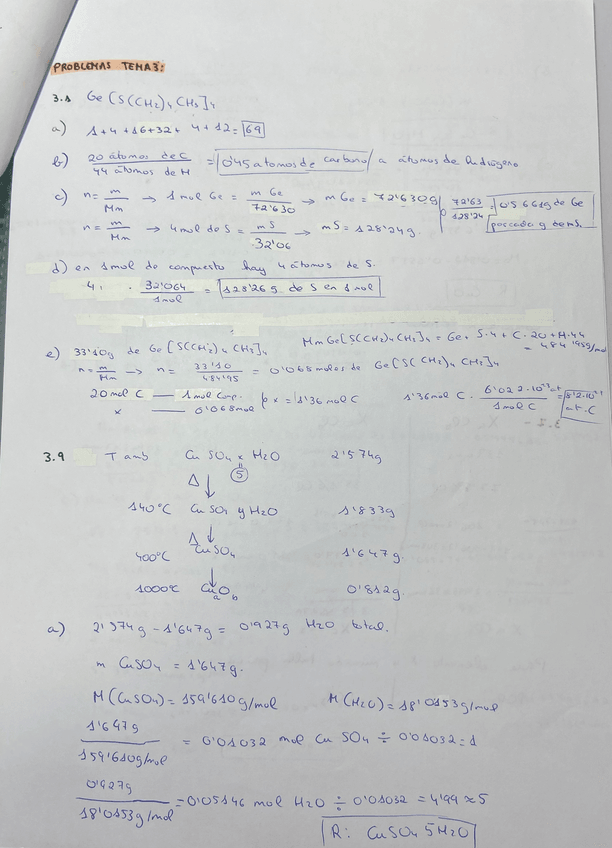 PROBLEMAS TEMA3:
3.1 Ge[S(CH2)4CH3]4
a) 1+4+16+32+ 4+12=69
b) 20 átomos de C / 44 átomos de H = 0'45 atomos de carbono a átomos de hidrógeno
c) n= m/Mm → 1mol Ge = m Ge/72'630 → m Ge= 72'630g 72'63/128'24 = 0'5661g de Ge por cada g de mS.
n= m/Mm → 4mol de S = mS/32'06 → mS= 128'24g.
d) en 1mol de compuesto hay 4 átomos de S.
4 · 32'064/1mol = 128'26 g de S en 1 mol
e) 33'10g de Ge[S(CH2)4CH3]4 Mm Ge[S(CH2)4CH3]4 = Ge + S·4 + C·20 + H·44 = 484'95g/mol
n= m/Mm → n= 33'10/484'95 = 0'068moles de Ge[S(CH2)4CH3]4
20mol C — 1mol Comp.
x — 0'068mol x = 1'36 mol C 1'36mol C · 6'022·10²³at/1mol C = 8'2·10²³ at.C
3.9 T amb CuSO4 x H2O 2'574g
5
Δ ↓
140°C CuSO4 y H2O 1'833g
Δ ↓
400°C CuSO4 1'647g.
↓
1000°C CuaOb 0'812g.
a) 2'574g - 1'647g = 0'927g H2O total.
m CuSO4 = 1'647g.
M(CuSO4) = 159'610g/mol M(H2O) = 18'0153g/mol
1'647g / 159'610g/mol = 0'01032 mol CuSO4 ÷ 0'01032 = 1
0'927g / 18'0153g/mol = 0'05146 mol H2O ÷ 0'01032 = 4'99 ≈ 5
R: CuSO4 5H2O